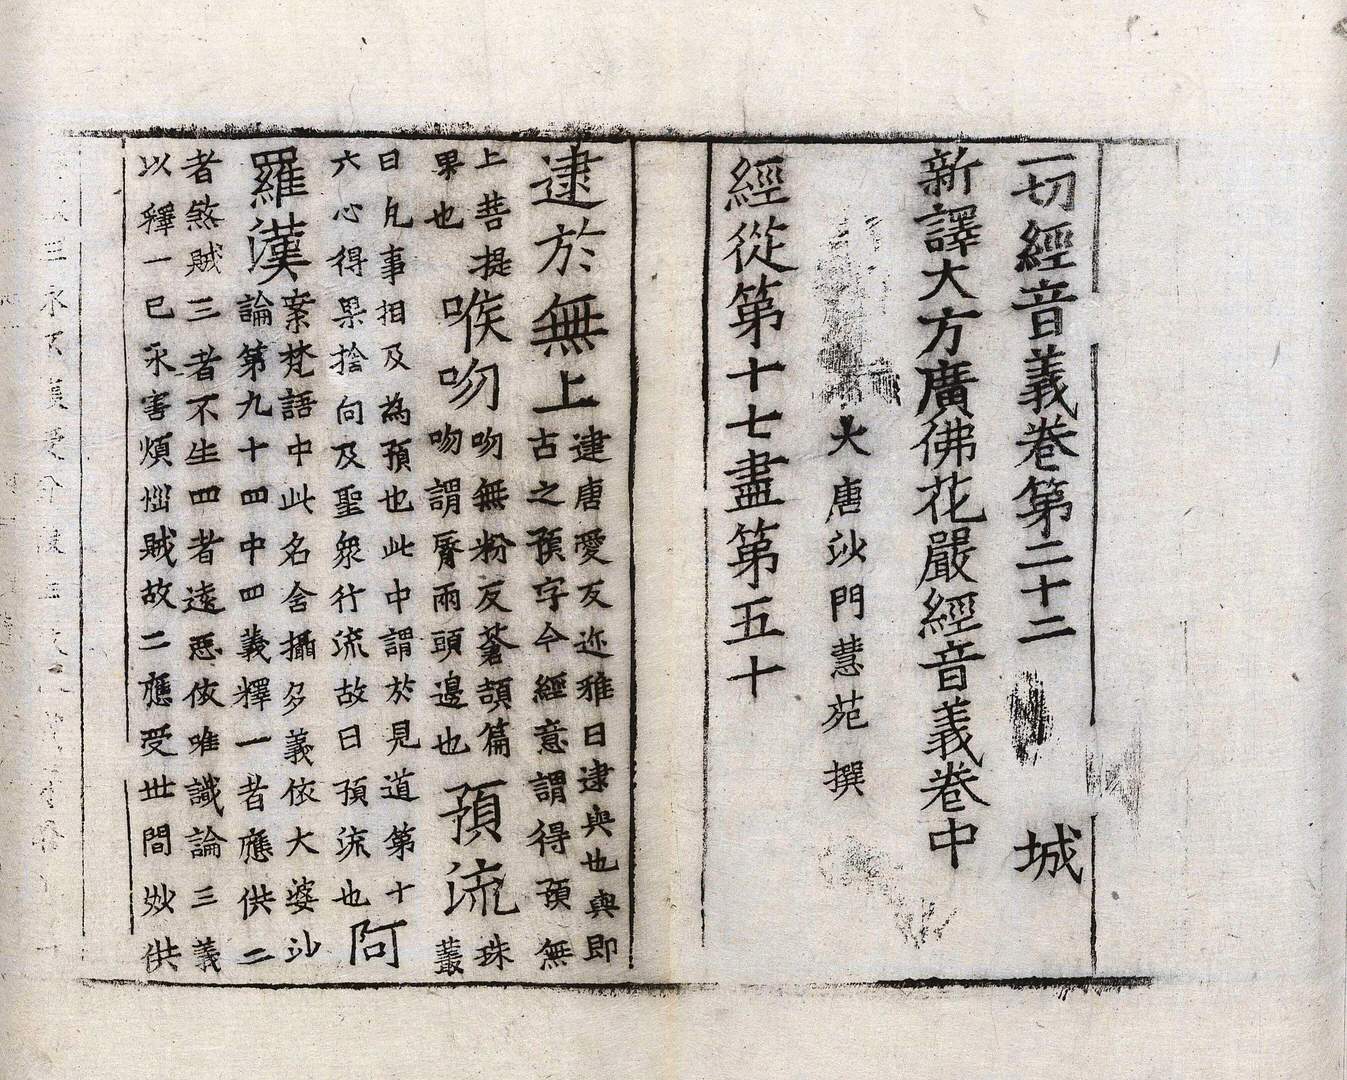 一切經音義卷第二十二 城
新譯大方廣佛花嚴經音義卷中
大唐沙門慧苑撰
經從第十七盡第五十
逮於無上 逮唐愛反迩雅曰逮與也與即古之預字今經意謂得預無
上菩提果也 喉吻 吻無粉反蒼頡篇吻謂脣兩頭邊也 預流 珠叢
曰凡事相及為預也此中謂於見道第十六心得果捨向及聖衆行流故曰預流也 阿
羅漢 案梵語中此名含攝多義依大婆沙論第九十四中四義釋一者應供二
者煞賊三者不生四者遠惡依唯識論三義以釋一已永害煩惱賊故二應受世間妙供